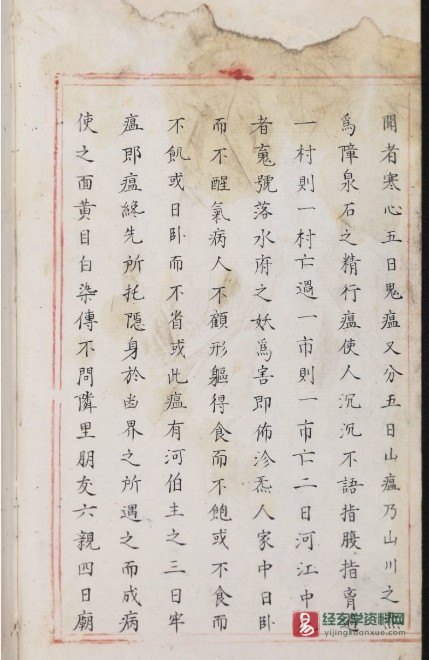 聞者寒心五日鬼瘟又分五日山瘟乃山川之
爲障泉石之精行瘟使人沉沉不語指腹指膏
一村則一村亡過一市則一市亡二日河江中
者䰟號落水府之妖爲害即佈沴炁人家中日卧
而不醒氣病人不顧形軀得食而不飽或不食而
不飢或日卧而不省或此瘟有河伯主之三日牢
瘟即瘟終先所托隱身於凾界之所遇之而成病
使之面黃目白染傳不問隣里朋友六親四日廟
易经玄学资料网
yijingxuanxue.com